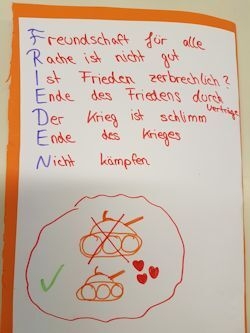 Freundschaft für alle
Rache ist nicht gut
Ist Frieden zerbrechlich?
Ende des Friedens durch Verträge
Der Krieg ist schlimm
Ende des Krieges
Nicht kämpfen